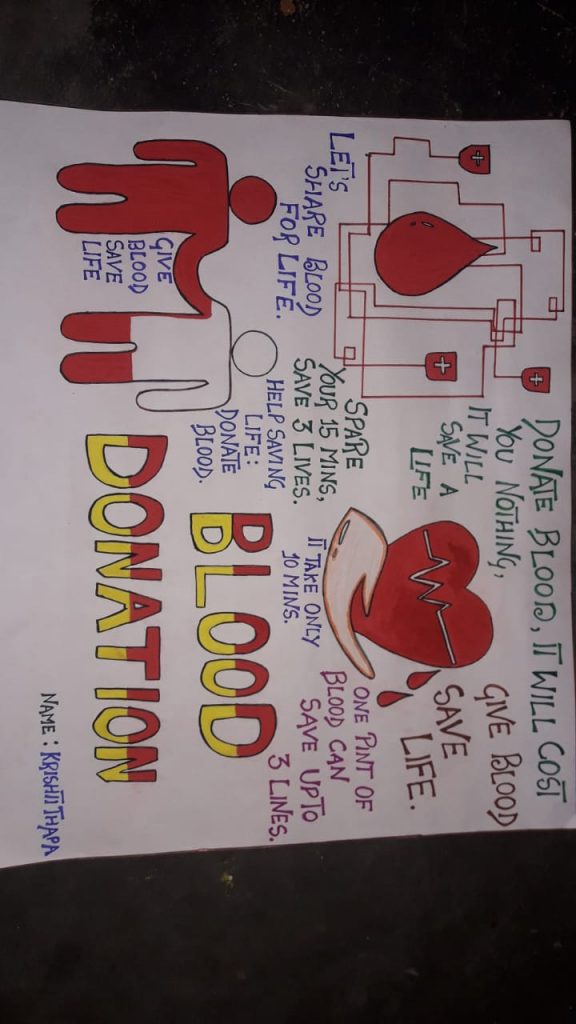 DONATE BLOOD, IT WILL COST
YOU NOTHING,
IT WILL
SAVE A
LIFE
GIVE BLOOD
SAVE
LIFE.
LET'S
SHARE BLOOD
FOR LIFE.
SPARE
YOUR 15 MINS,
SAVE 3 LIVES.
HELP SAVING
LIFE:
DONATE
BLOOD.
IT TAKE ONLY
10 MINS.
ONE PINT OF
BLOOD CAN
SAVE UPTO
3 LINES.
GIVE
BLOOD
SAVE
LIFE
BLOOD
DONATION
NAME: KRISHTI THAPA